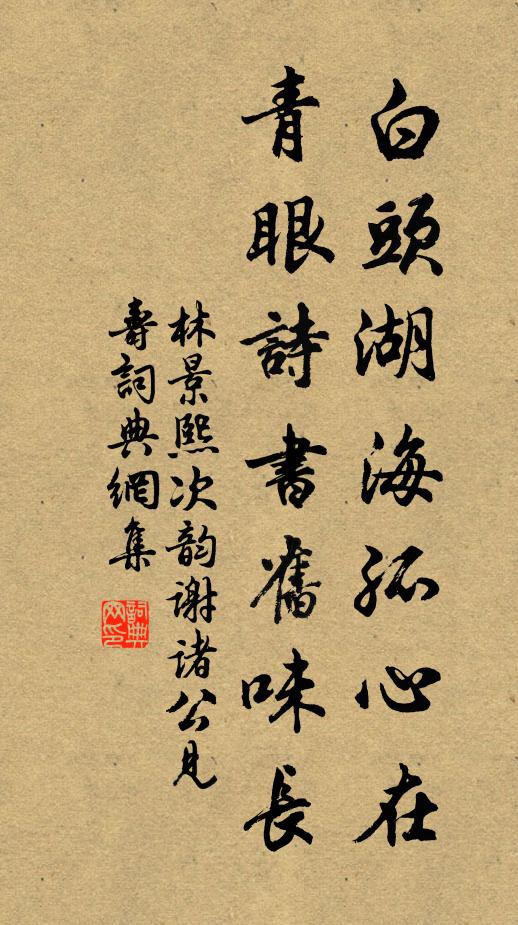 白頭湖海孤心在
青眼詩書舊味長
林景熙次韵謝诸公見
壽詞典網集
詞典網印